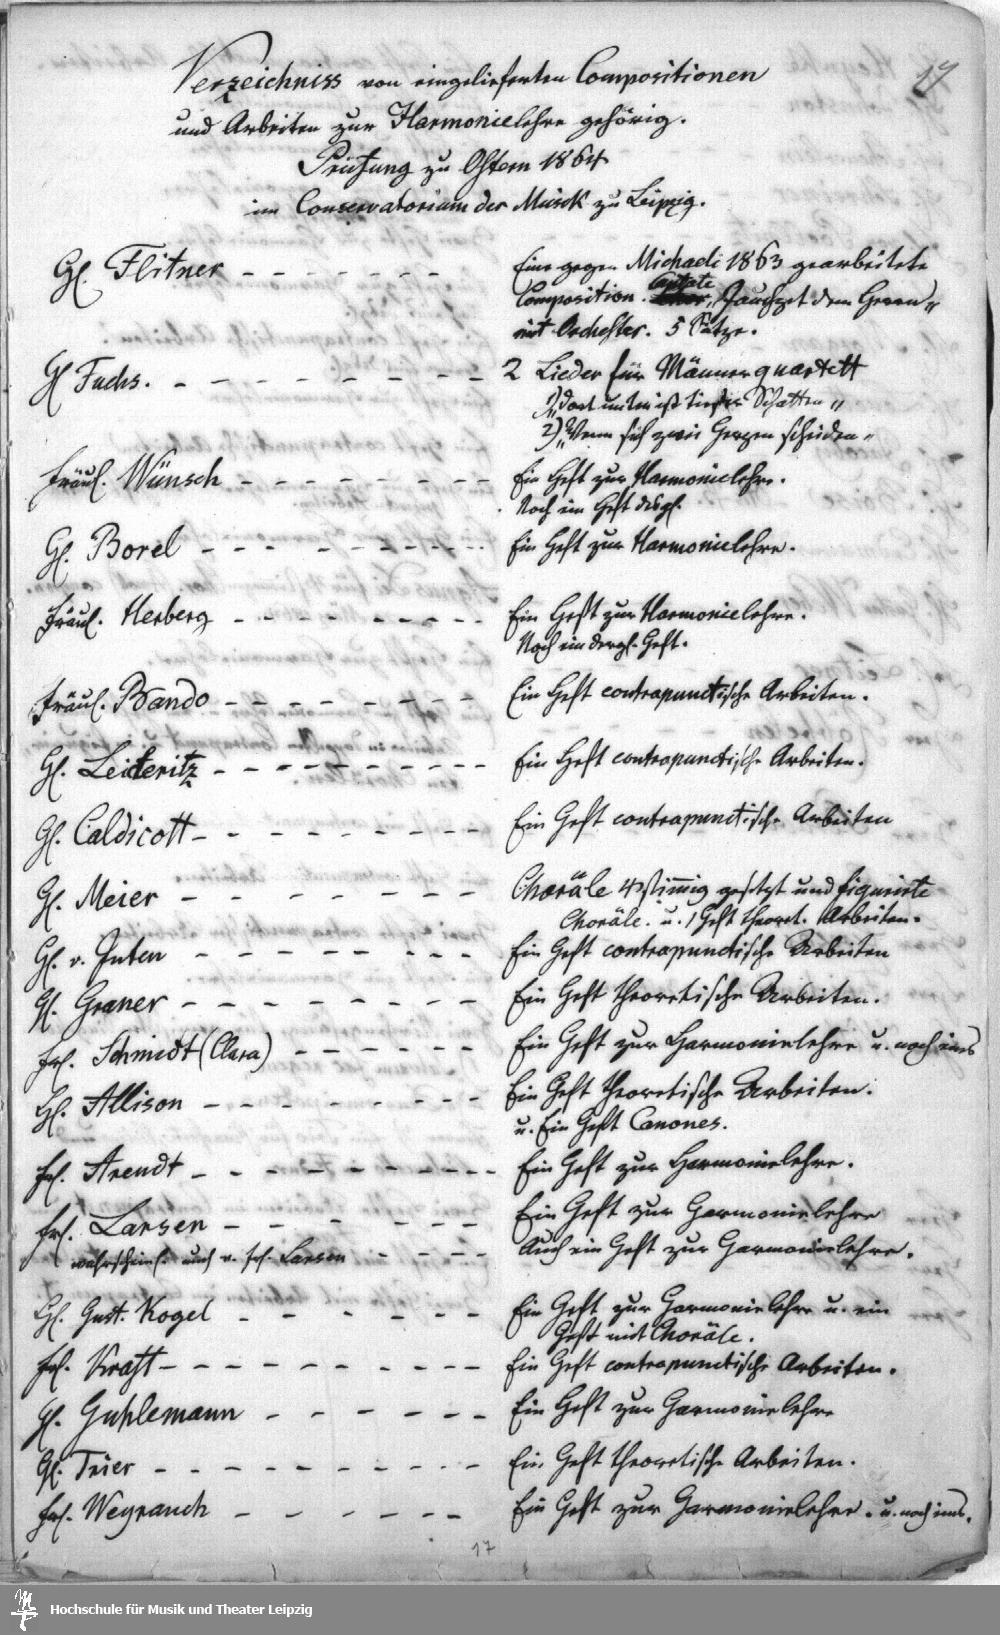 17
Verzeichniss von eingelieferten Compositionen
und Arbeiten zur Harmonielehre gehörig.
Prüfung zu Ostern 1864
im Conservatorium der Musick zu Leipzig.
H. Flitner - - - - - - - Eine gegen Michaeli 1863 gearbeitete
Composition. Cantate „Jauchzet dem Herrn„
mit Orchester. 5 Sätze.
H. Fuchs. - - - - - - - - - - 2 Lieder für Männerquartett
1) „dort unten ist tiefer Schatten„
2) „Wenn sich zwei Herzen scheiden„
Fräul. Wünsch - - - - - - - - - Ein Heft zur Harmonielehre.
Noch ein Heft desgl.
H. Borel - - - - - - - - - - Ein Heft zur Harmonielehre.
Fräul. Herberg - - - - - - - - Ein Heft zur Harmonielehre.
Noch ein dergl. Heft.
Fräul. Brando - - - - - - - - Ein Heft contrapunctische Arbeiten.
H. Leiteritz - - - - - - - - - - Ein Heft contrapunctische Arbeiten.
H. Caldicott - - - - - - - - - Ein Heft contrapunctische Arbeiten
H. Meier - - - - - - - - Choräle 4stimmig gesetzt und figurirte
Choräle. u. 1 Heft theoret. Arbeiten.
H. v. Inten - - - - - - - - Ein Heft contrapunctische Arbeiten
H. Graner - - - - - - - - - Ein Heft theoretische Arbeiten.
Frl. Schmidt (Clara) - - - - - - Ein Heft zur Harmonielehre u. noch eins
H. Allison - - - - - - - - - Ein Heft theoretische Arbeiten.
u. Ein Heft Canones.
Frl. Arendt - - - - - - - - - - Ein Heft zur Harmonielehre.
Frl. Larsen - - - - - - - Ein Heft zur Harmonielehre
wahrscheinl. auch v. Frl. Larsen - - - - Auch ein Heft zur Harmonielehre.
H. Gust. Kogel - - - - - - Ein Heft zur Harmonielehre u. ein
Heft mit Choräle.
Frl. Kraft - - - - - - - - - - Ein Heft contrapunctische Arbeiten.
H. Huhlemann - - - - - - Ein Heft zur Harmonielehre
H. Trier - - - - - - - - - - Ein Heft theoretische Arbeiten.
Frl. Weyrauch - - - - - - Ein Heft zur Harmonielehre. u. noch eins.
17
Hochschule für Musik und Theater Leipzig